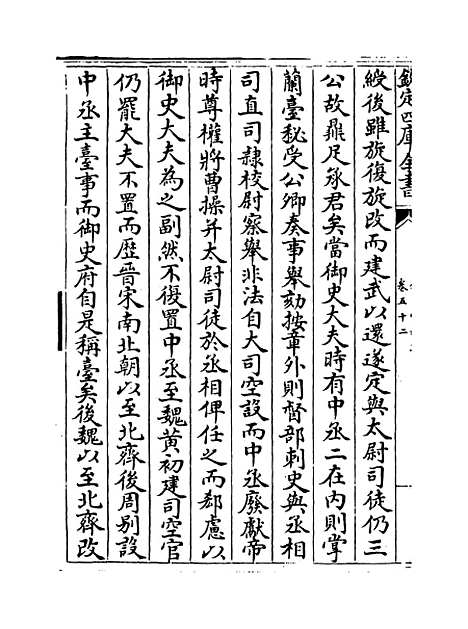 欽定四庫全書
卷五十二
綬後雖旋復旋改而建武以還遂定與太尉司徒仍三
公故鼎足承君矣當御史大夫時有中丞二在内則掌
蘭臺秘受公卿奏事舉劾按章外則督部刺史與丞相
司直司隷校尉察舉非法自大司空設而中丞廢獻帝
時尊權將曹操并太尉司徒於丞相俾任之而郄慮以
御史大夫為之副然不復置中丞至魏黄初建司空官
仍罷大夫不置而歴晉宋南北朝以至北齊後周别設
中丞主臺事而御史府自是稱臺矣後魏以至北齊改